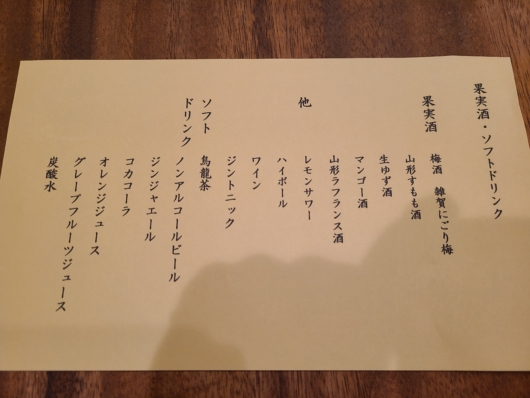 果実酒・ソフトドリンク
果実酒
梅酒 雑賀にごり梅
山形すもも酒
生ゆず酒
マンゴー酒
山形ラフランス酒
他
レモンサワー
ハイボール
ワイン
ジントニック
ソフト
ドリンク
烏龍茶
ノンアルコールビール
ジンジャエール
コカコーラ
オレンジジュース
グレープフルーツジュース
炭酸水